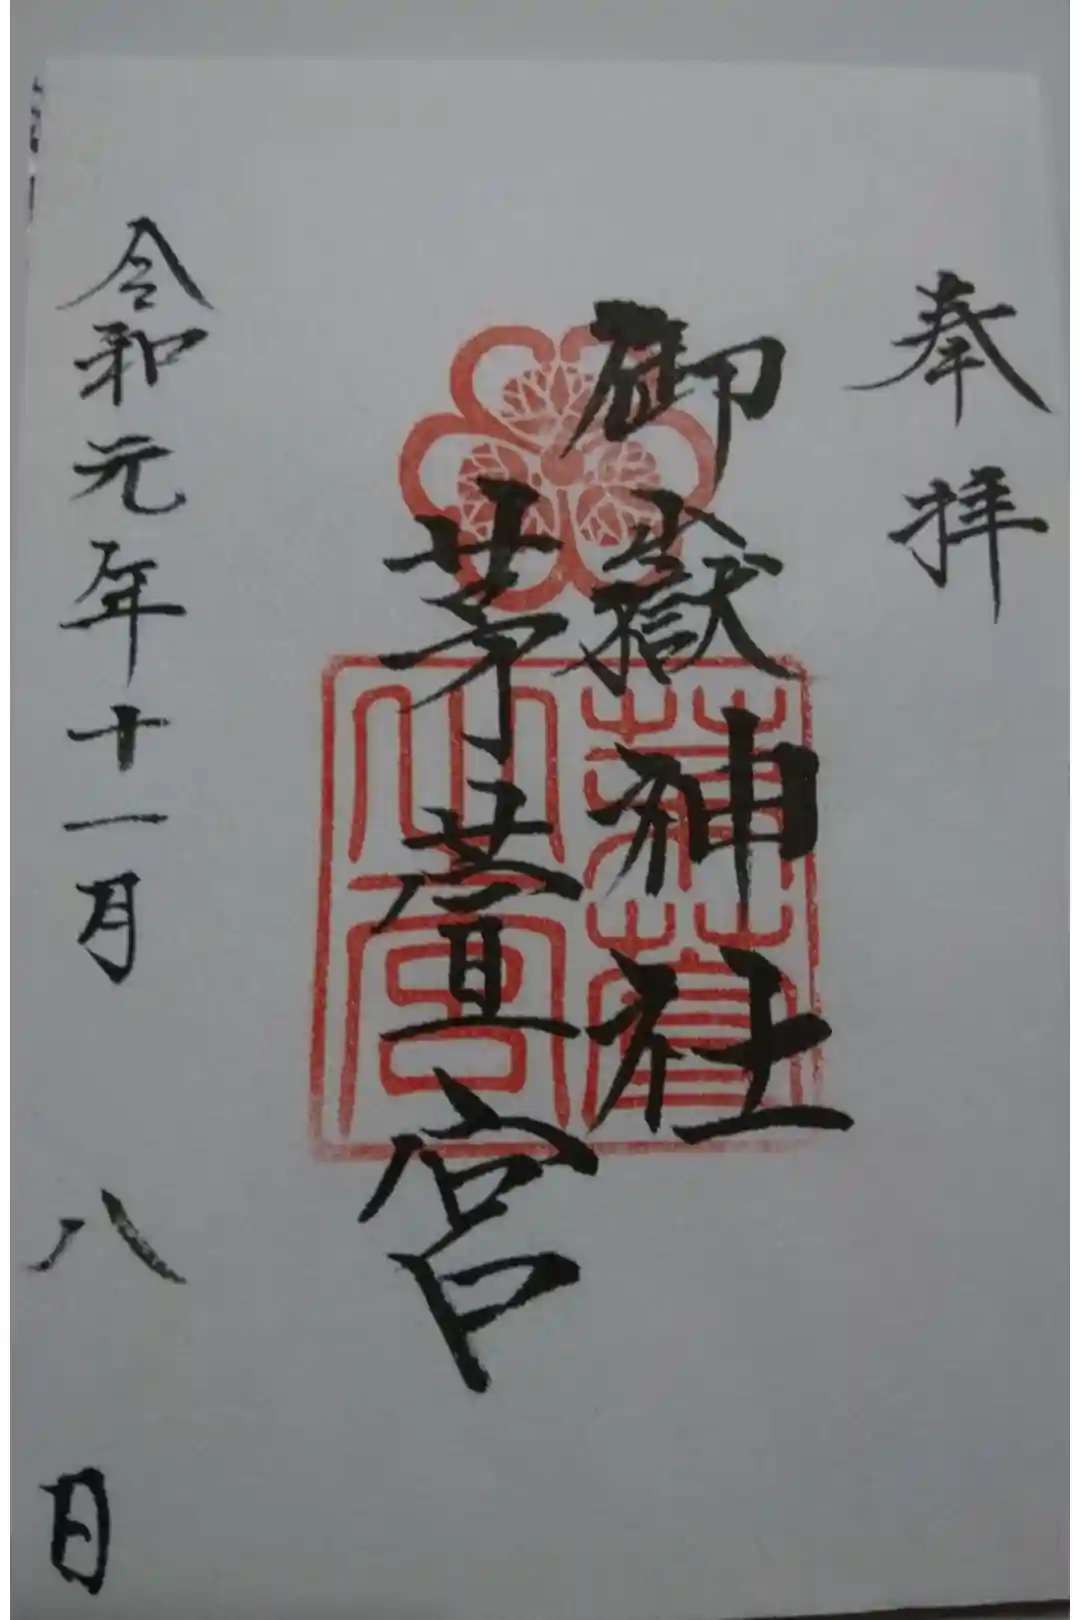 奉拝
御嶽神社
茅萱宮
令和元年十一月 八日